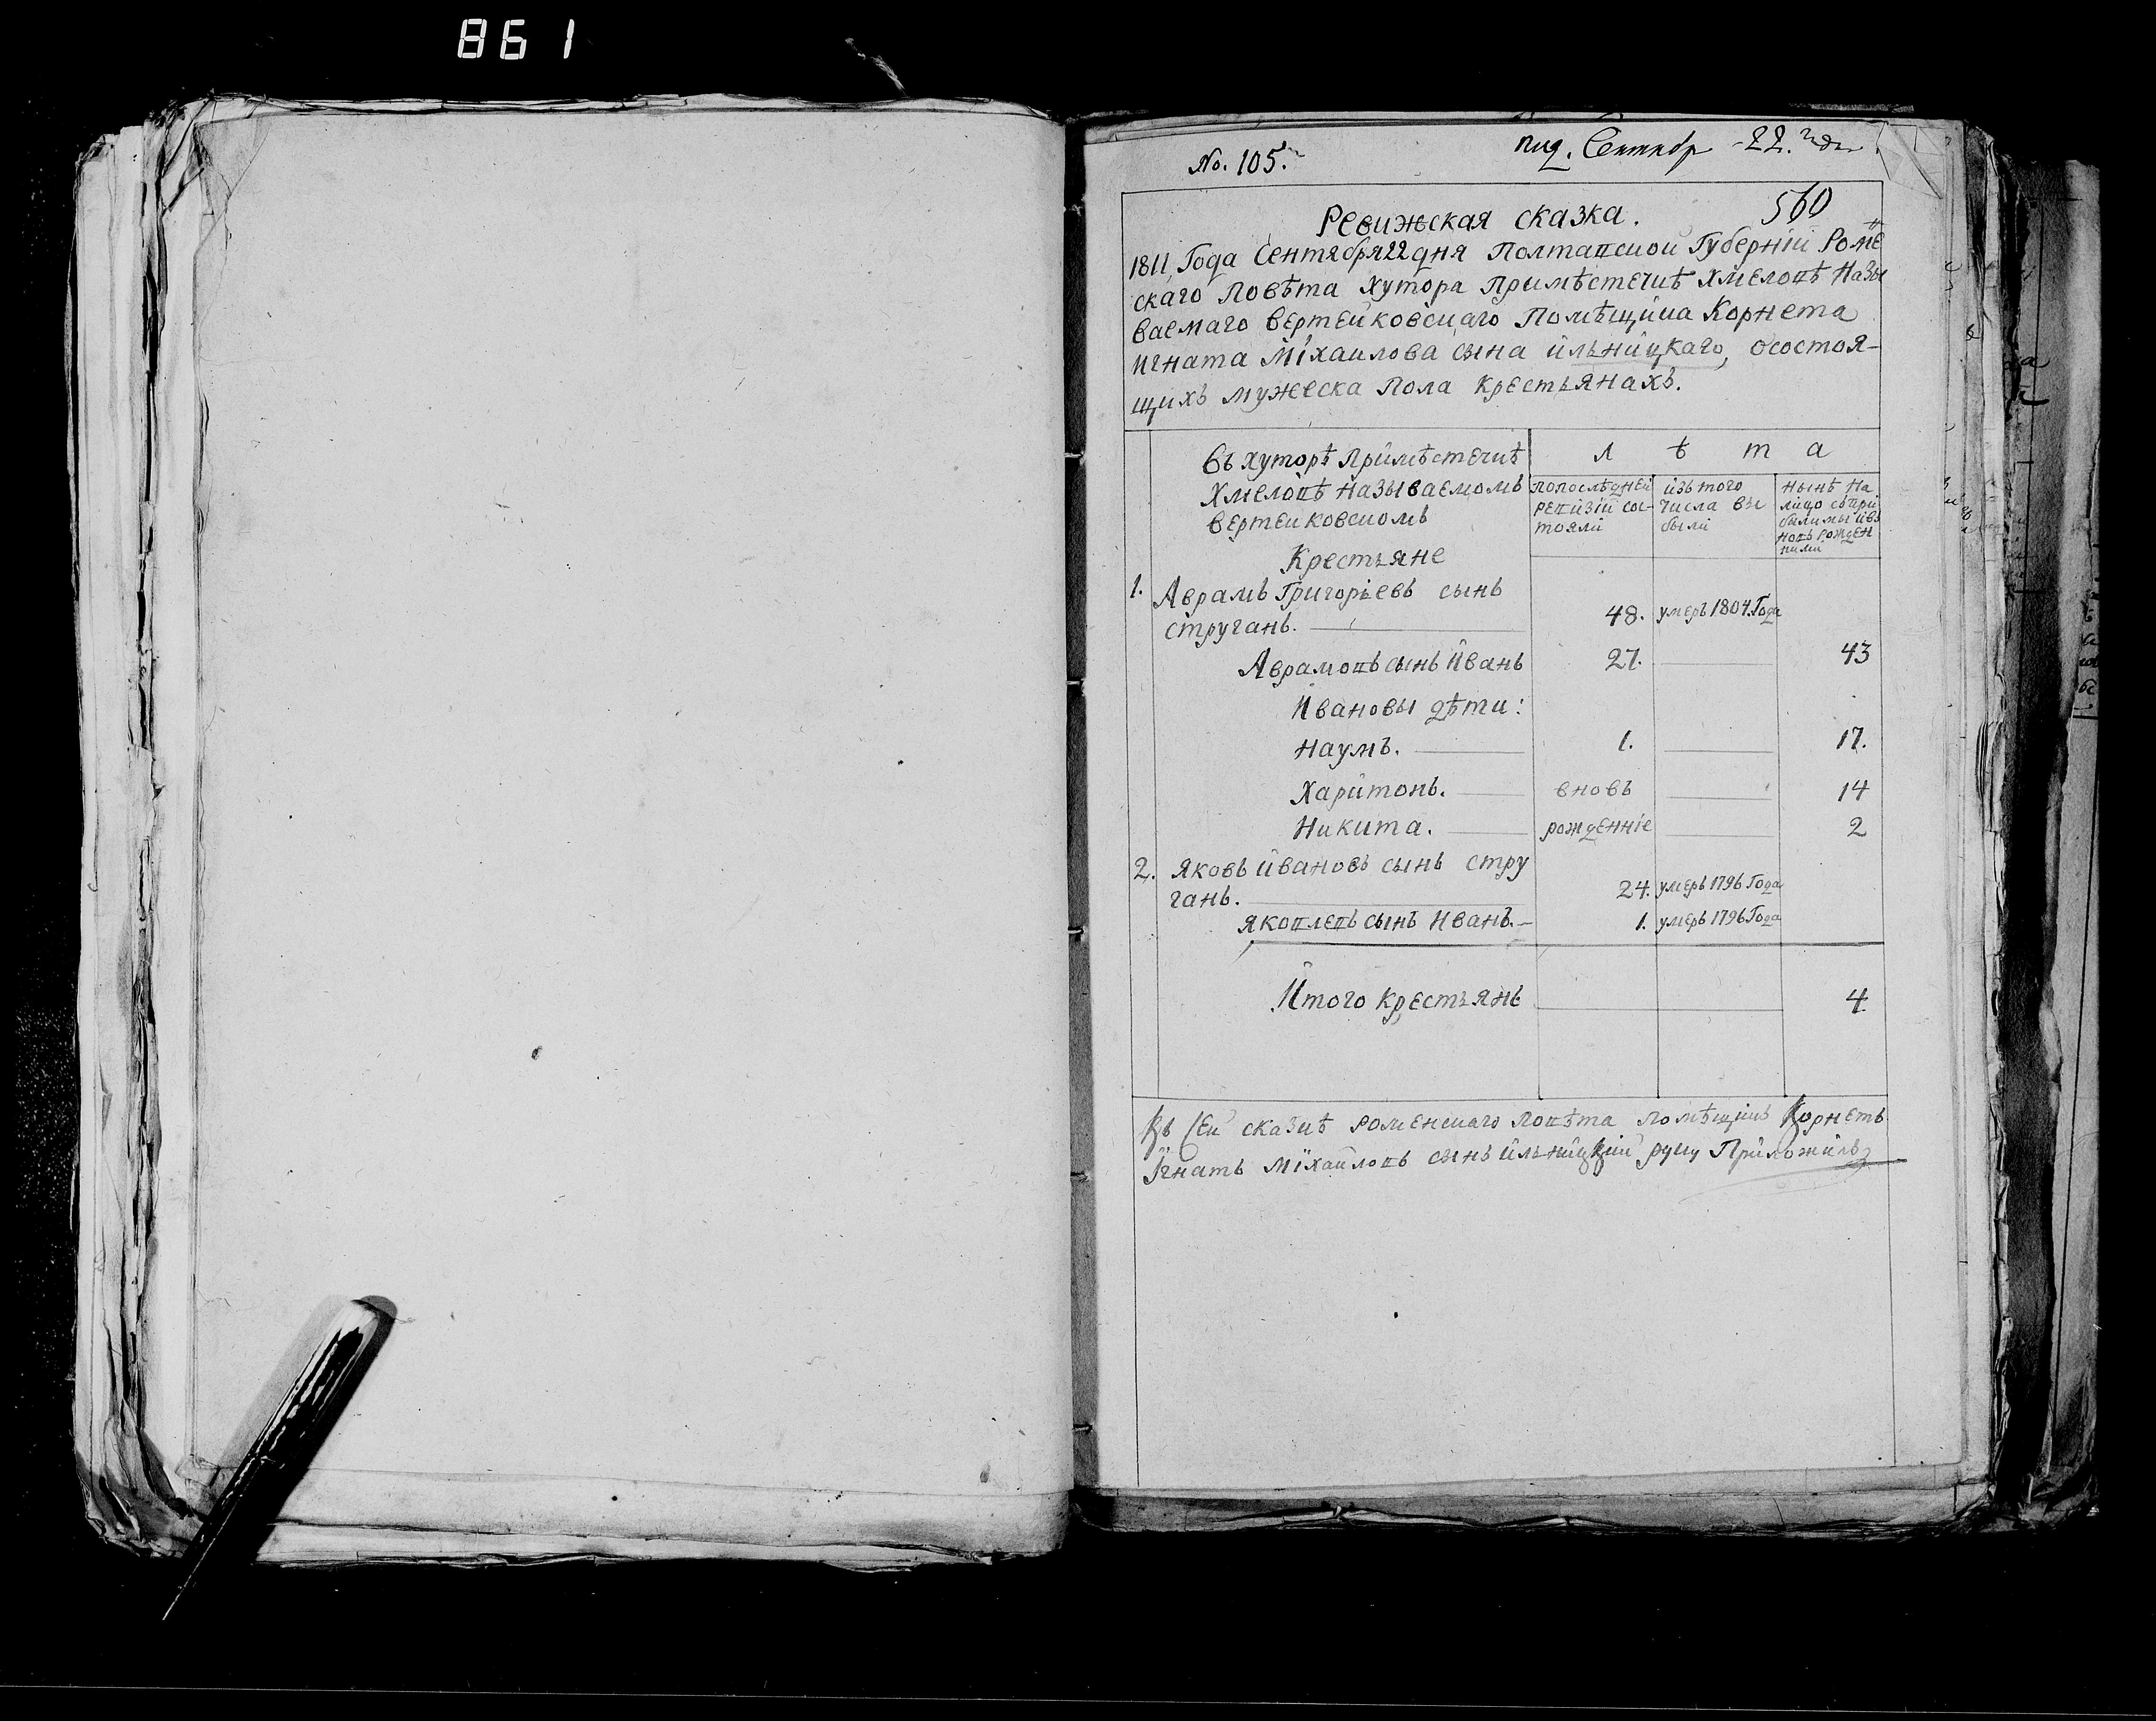 861
No. 105.
Сентябр 22. дня
560
Ревижская сказка.
1811 Года Сентября 22 дня Полтавской Губерніи Роме
скаго Повѣта хутора Примѣстечкѣ Хмеловѣ Назы
ваемаго вертейковскаго Помѣщика Корнета
Игната Міхаилова сына ильницкаго, осостоя-
щихъ мужеска Пола крестьянахъ.
Въ хуторѣ Примѣстечкѣ
Хмеловѣ называемомъ
вертейковскомъ
Крестьяне
л ѣ т а
попослѣдней
ревизіи сос-
тояли
изъ того
числа вы
были
нынѣ на
лицо съ при
былыми ивъ
новь рожден
ными
1. Аврамъ Григорьевъ сынъ
стругань. 48. умеръ 1804. Года
Аврамовъ сынъ Иванъ 27. 43
Ивановы дѣти:
Наумъ. 1. 17.
Харитонъ. вновь 14
Никита. рожденніе 2
2. Яковъ ивановъ сынъ стру
гань. 24. умеръ 1796 Года
яковлевъ сынъ Иванъ. 1. умеръ 1796 Года
Итого крестьянъ 4
Къ сей сказкѣ роменскаго повѣта помѣщикъ Корнетъ
Ігнатъ міхайловъ сынъ ильницкій руку Приложилъ